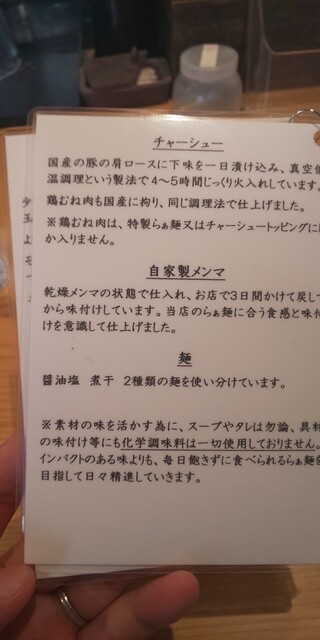 チャーシュー
国産の豚の肩ロースに下味を一日漬け込み、真空
温調理という製法で4〜5時間じっくり火入れしています。
鶏むね肉も国産に拘り、同じ調理法で仕上げました。
※鶏むね肉は、特製らぁ麺又はチャーシュートッピングに
か入りません。
自家製メンマ
乾燥メンマの状態で仕入れ、お店で3日間かけて戻して
から味付けしています。当店のらぁ麺に合う食感と味付
けを意識して仕上げました。
麺
醤油塩 煮干 2種類の麺を使い分けています。
※素材の味を活かす為に、スープやタレは勿論、具材
の味付け等にも化学調味料は一切使用しておりません。
インパクトのある味よりも、毎日飽きずに食べられるらぁ麺を
目指して日々精進していきます。